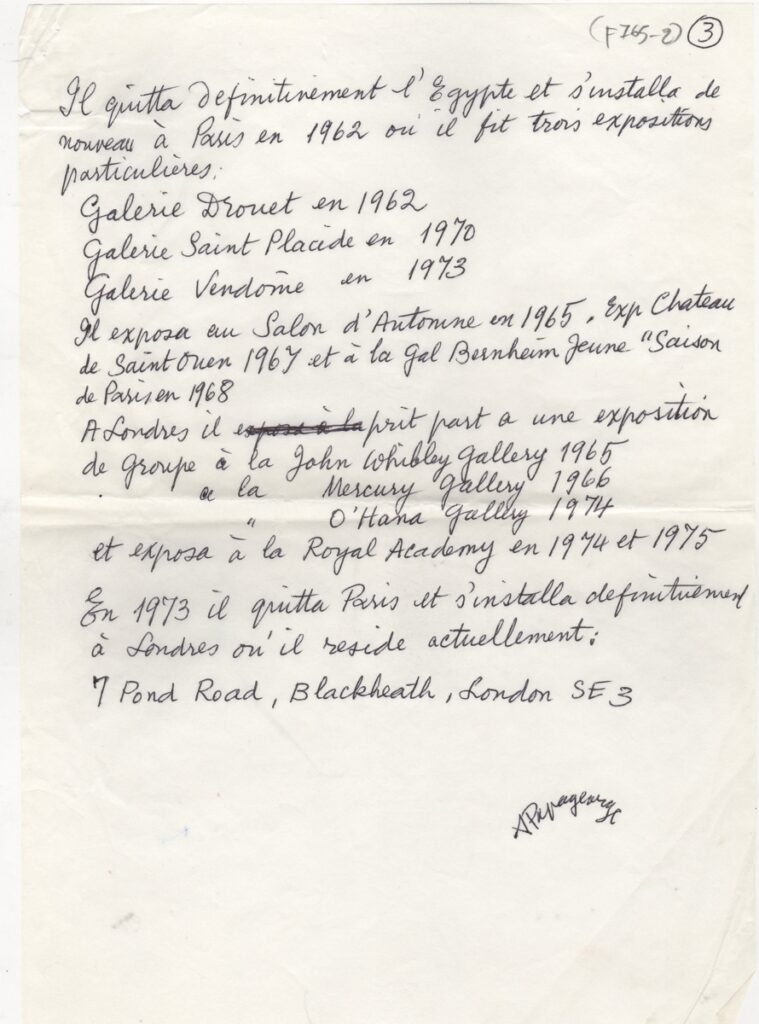 (F765-2) 3
Il quitta definitivement l'Egypte et s'installa de
nouveau à Paris en 1962 où il fit trois expositions
particulières:
Galerie Drouet en 1962
Galerie Saint Placide en 1970
Galerie Vendome en 1973
Il exposa au Salon d'Automne en 1965. Exp Chateau
de Saint Ouen 1967 et à la Gal Bernheim Jeune "Saison
de Paris en 1968
A Londres il exposa à la prit part a une exposition
de Groupe à la John Whibley Gallery 1965
a la Mercury Gallery 1966
" O'Hana Gallery 1974
et exposa à la Royal Academy en 1974 et 1975
En 1973 il quitta Paris et s'installa definitivement
à Londres où il reside actuellement:
7 Pond Road, Blackheath, London SE3
A Papageorge